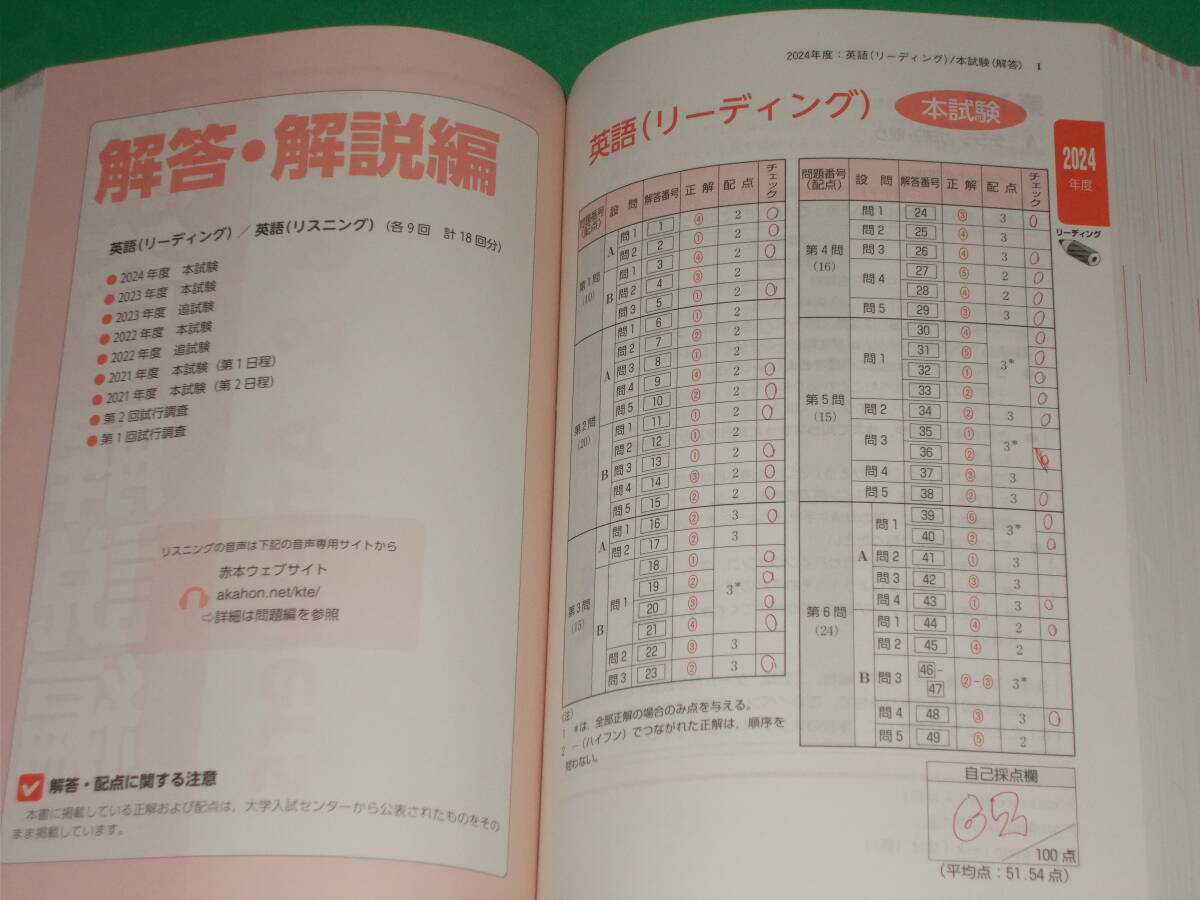 解答・解説編
英語(リーディング)／英語(リスニング)(各9回 計18回分)
● 2024年度 本試験
● 2023年度 本試験
● 2023年度 追試験
● 2022年度 本試験
● 2022年度 追試験
● 2021年度 本試験(第1日程)
● 2021年度 本試験(第2日程)
● 第2回試行調査
● 第1回試行調査
リスニングの音声は下記の音声専用サイトから
赤本ウェブサイト
akahon.net/kte/
⇨詳細は問題編を参照
解答・配点に関する注意
本書に掲載している正解および配点は，大学入試センターから公表されたものをその
まま掲載しています。
2024年度：英語(リーディング)/本試験〈解答〉 1
英語(リーディング) 本試験
問題番号(配点) 設問 解答番号 正解 配点 チェック
第1問(10) A 問1 1 ④ 2
問2 2 ① 2
B 問1 3 ④ 2
問2 4 ③ 2
問3 5 ① 2
第2問(20) A 問1 6 ① 2
問2 7 ② 2
問3 8 ① 2
問4 9 ④ 2
問5 10 ② 2
B 問1 11 ① 2
問2 12 ① 2
問3 13 ① 2
問4 14 ③ 2
問5 15 ② 2
第3問(15) A 問1 16 ② 3
問2 17 ② 3
B 問1 18 ① 3*
19 ②
20 ③
21 ④
問2 22 ③ 3
問3 23 ② 3
(注)
1 *は，全部正解の場合のみ点を与える。
2 -(ハイフン)でつながれた正解は，順序を
問わない。
問題番号(配点) 設問 解答番号 正解 配点 チェック
第4問(16) 問1 24 ③ 3
問2 25 ④ 3
問3 26 ④ 3
問4 27 ⑤ 2
28 ④ 2
問5 29 ③ 3
第5問(15) 問1 30 ④ 3*
31 ⑤
32 ①
33 ②
問2 34 ② 3
問3 35 ① 3*
36 ②
問4 37 ③ 3
問5 38 ② 3
第6問(24) A 問1 39 ⑥ 3*
40 ②
問2 41 ① 3
問3 42 ③ 3
問4 43 ① 3
B 問1 44 ④ 2
問2 45 ④ 2
問3 46-47 ②-③ 3*
問4 48 ③ 3
問5 49 ⑤ 2
自己採点欄
62
100点
(平均点：51.54点)
2024
年度
リーディング